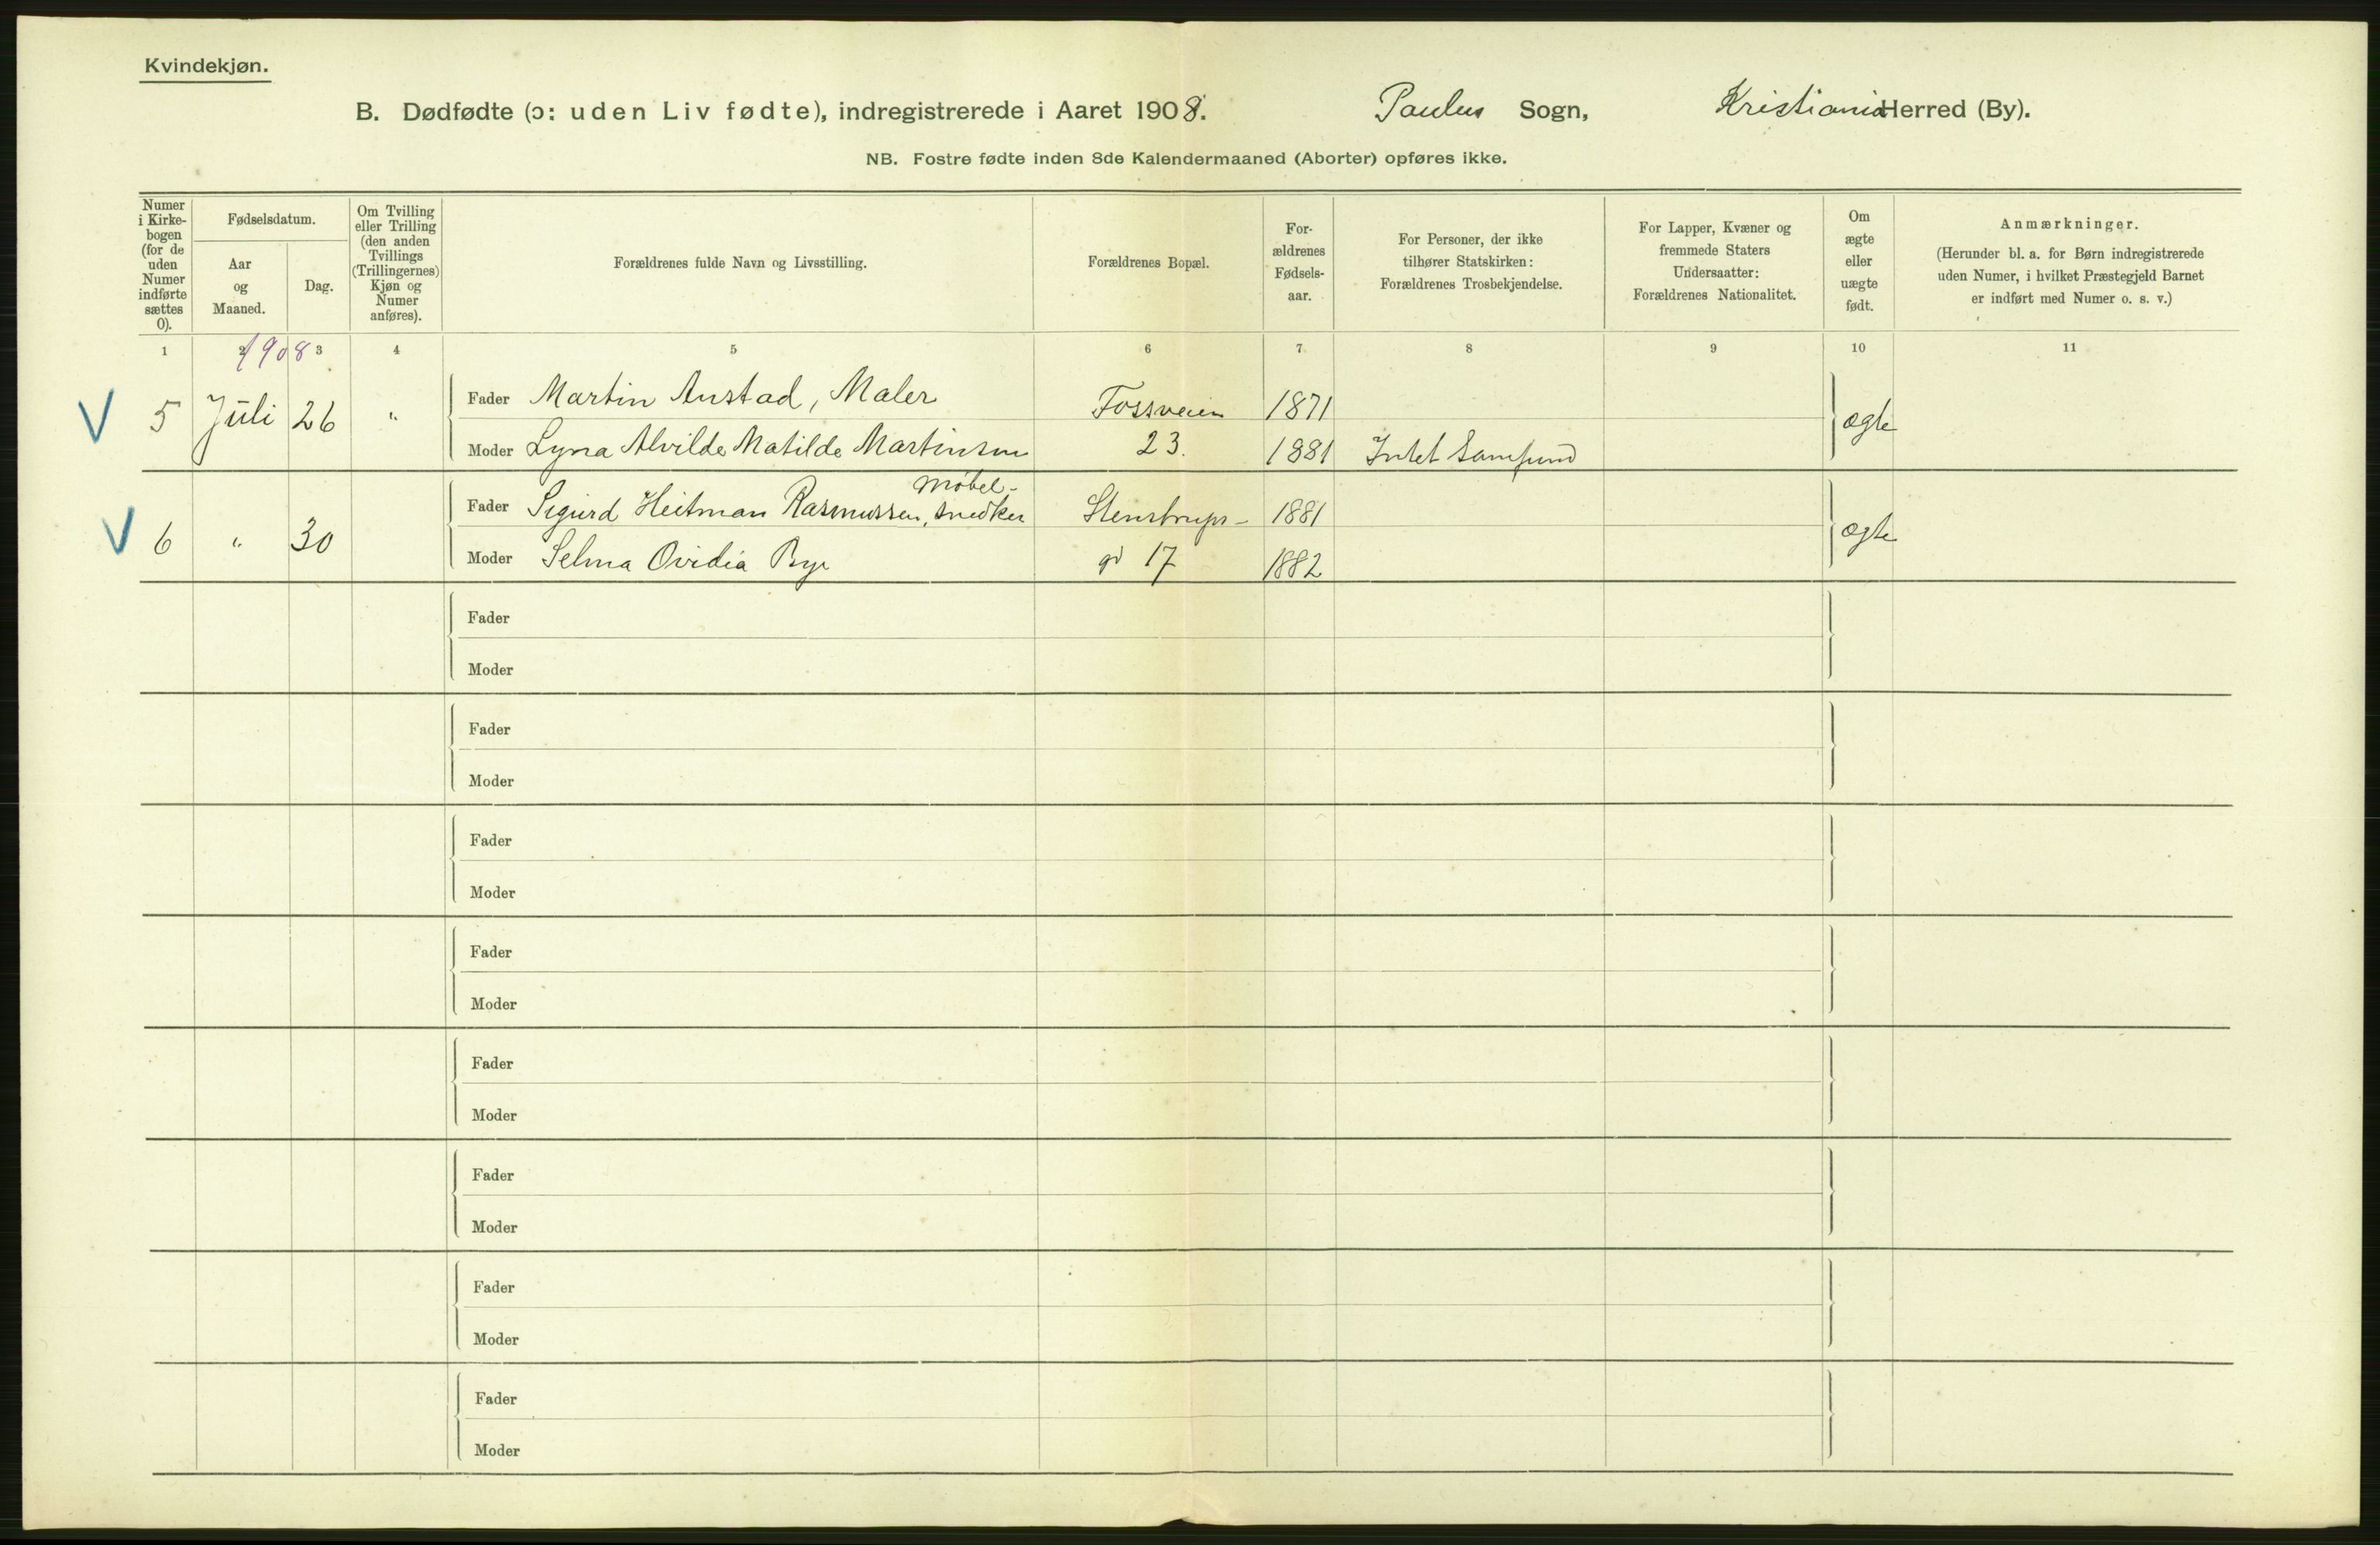 Kvindekjøn.
B. Dødfødte (ɔ: uden Liv fødte), indregistrerede i Aaret 1908. Paulus Sogn, Kristiania Herred (By).
NB. Fostre fødte inden 8de Kalendermaaned (Aborter) opføres ikke.
Numer
i Kirke-
bogen
(for de
uden
Numer
indførte
sættes
0).
Fødselsdatum.
Aar
og
Maaned.
Dag.
Om Tvilling
eller Trilling
(den anden
Tvillings
(Trillingernes)
Kjøn og
Numer
anføres).
Forældrenes fulde Navn og Livsstilling.
Forældrenes Bopæl.
For-
ældrenes
Fødsels-
aar.
For Personer, der ikke
tilhører Statskirken:
Forældrenes Trosbekjendelse.
For Lapper, Kvæner og
fremmede Staters
Undersaatter:
Forældrenes Nationalitet.
Om
ægte
eller
uægte
født.
Anmærkninger.
(Herunder bl. a. for Børn indregistrerede
uden Numer, i hvilket Præstegjeld Barnet
er indført med Numer o. s. v.)
1 2 3 4 5 6 7 8 9 10 11
1908
V 5 Juli 26 " Fader Martin Anstad, Maler Fossveien 1871 ægte
Moder Lyna Alvilde Matilde Martinsen 23. 1881 Intet Samfund
Møbel-
V 6 " 30 Fader Sigurd Heitman Rasmussen, snedker Stenstrups- 1881 ægte
Moder Selma Ovidia Bye gd 17 1882
Fader
Moder
Fader
Moder
Fader
Moder
Fader
Moder
Fader
Moder
Fader
Moder
Fader
Moder
Fader
Moder